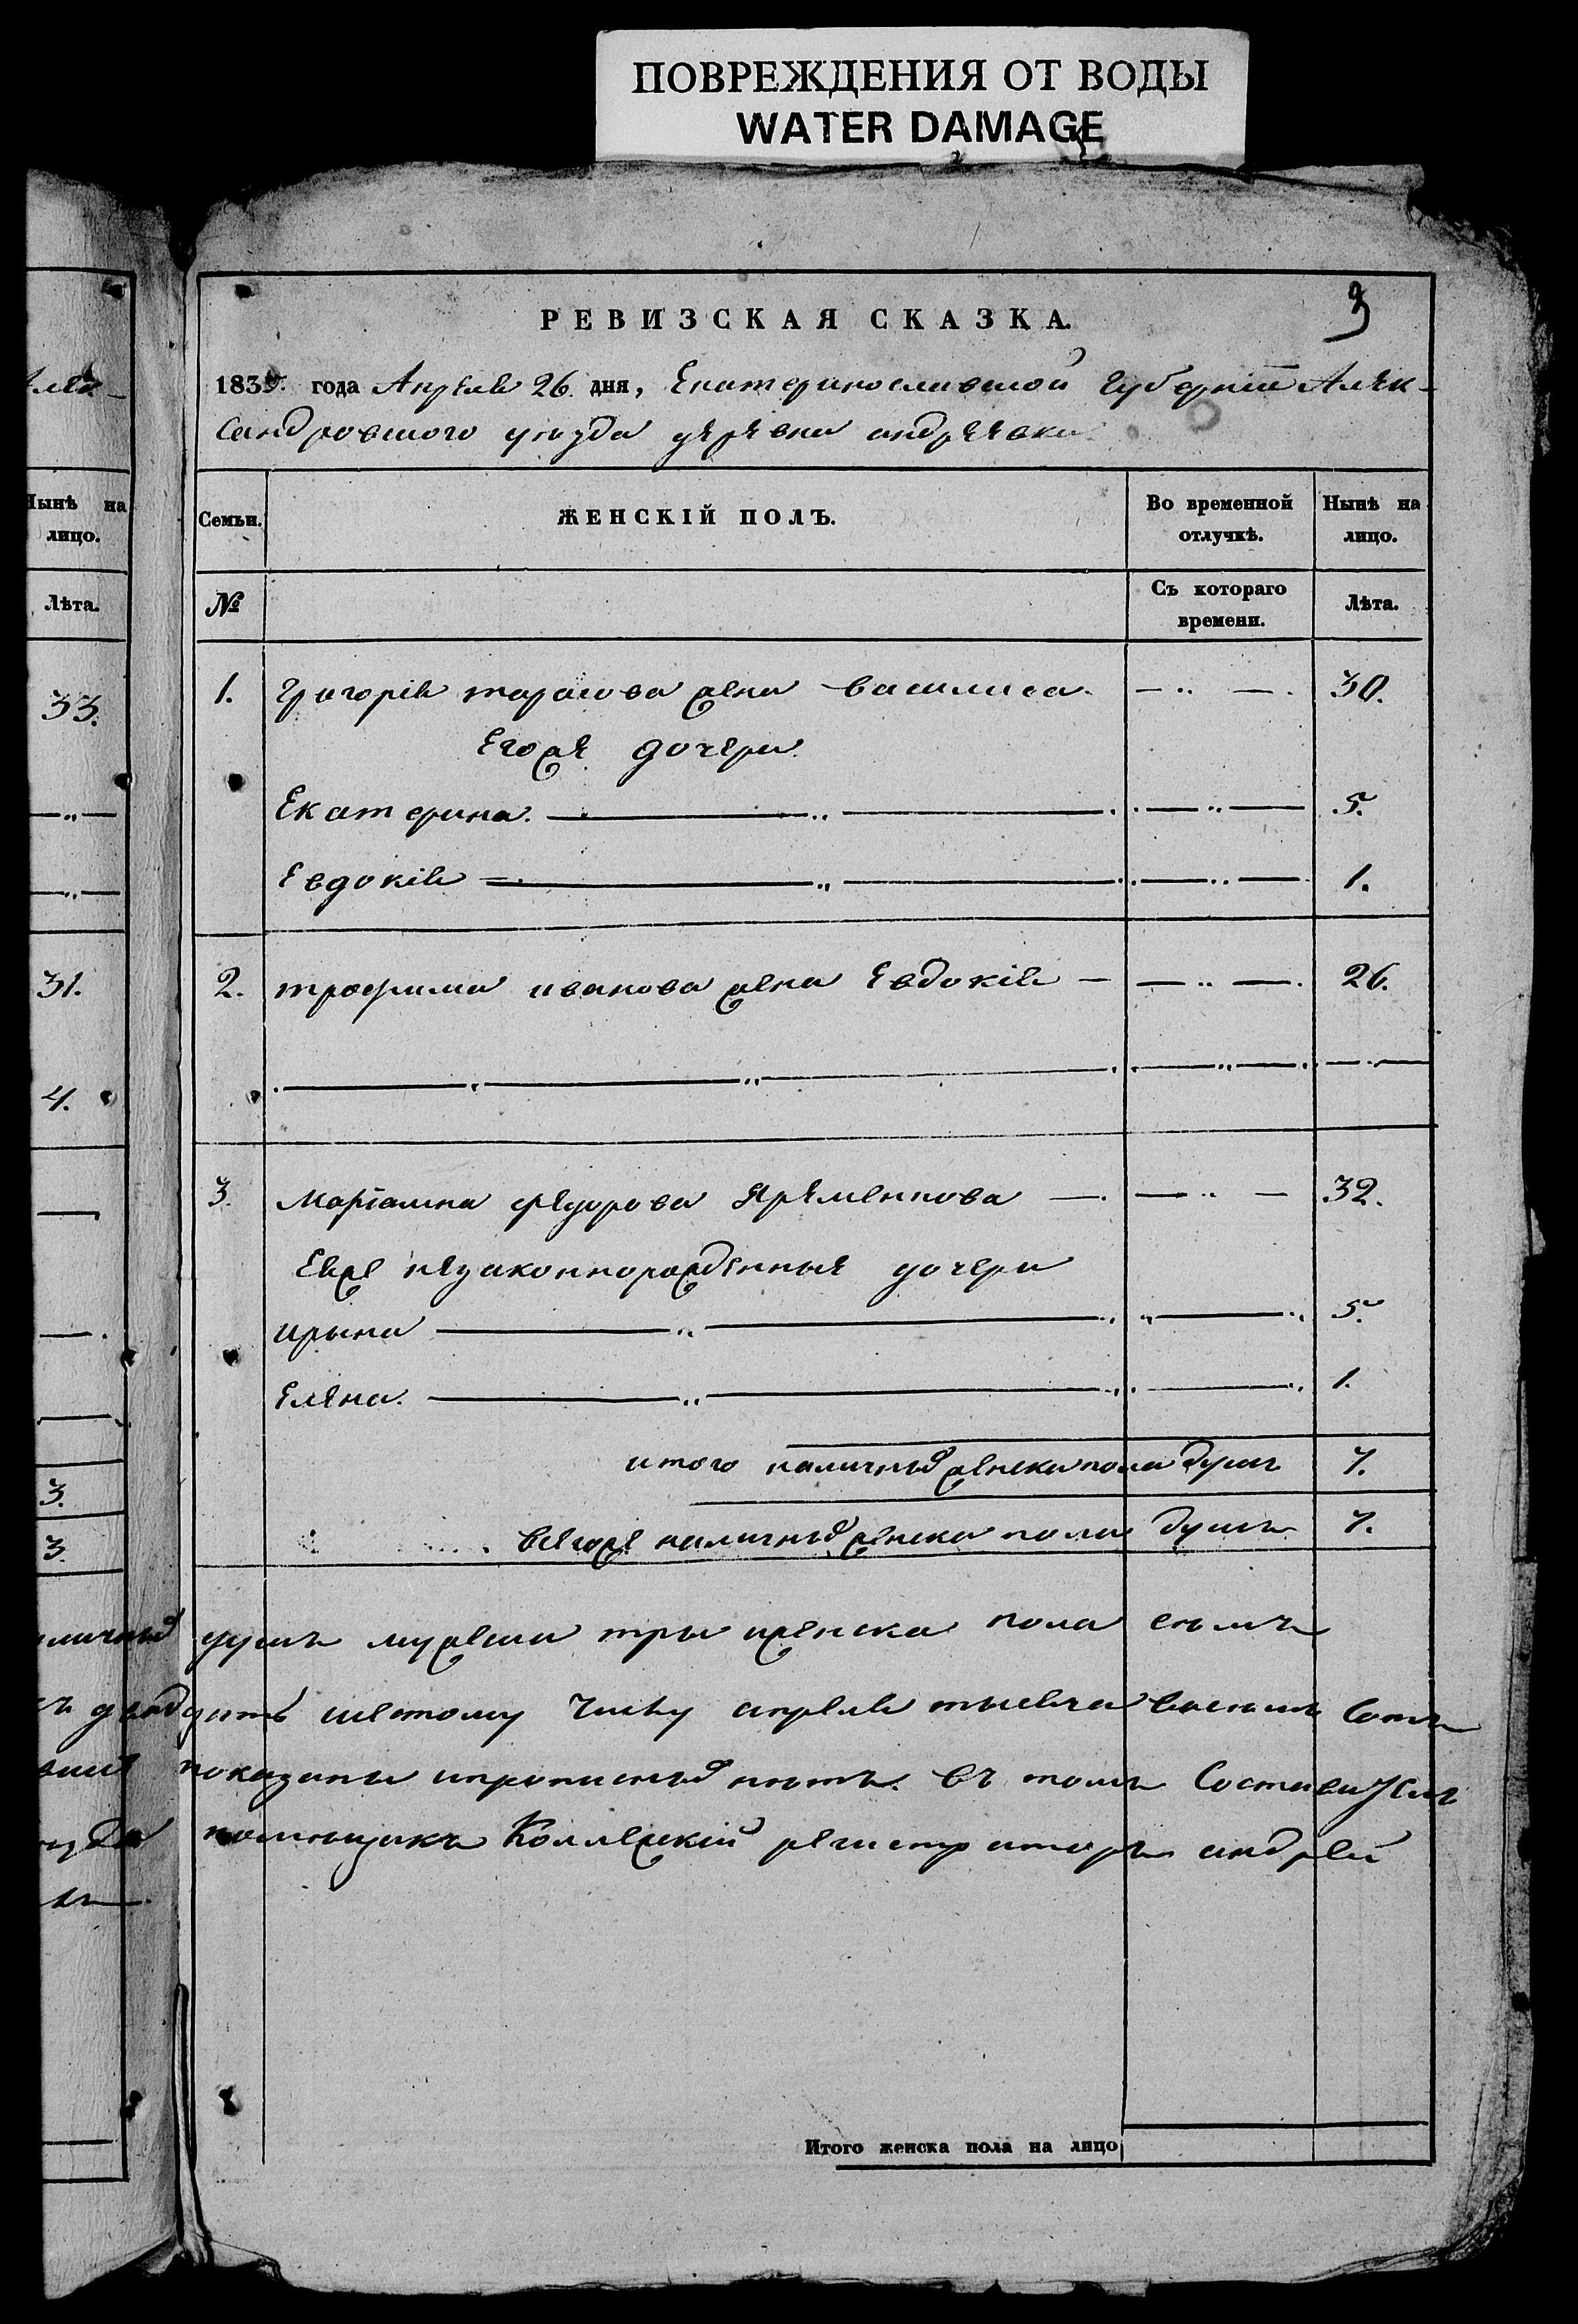 ПОВРЕЖДЕНИЯ ОТ ВОДЫ
WATER DAMAGE
3
РЕВИЗСКАЯ СКАЗКА.
1835. года Апреля 26. дня, Екатеринославской губернии Алек-
сандровского уезда деревни андреевки
Нынѣ на лицо.
Лѣта.
33.
31.
4.
3.
3.
Семьи.
ЖЕНСКІЙ ПОЛЪ.
Во временной отлучкѣ.
Нынѣ на лицо.
№
Съ котораго времени.
Лѣта.
1. Григорія тарасова жена василиса. 30.
Егоже дочери
Екатерина. 5.
Евдокія 1.
2. трофима иванова жена Евдокія 26.
3. Маріамна федорова Яременкова 32.
Еяже незаконнорожденные дочери
ирына 5.
Елена. 1.
итого наличныхъ женска пола душъ 7.
всегоже наличныхъ женска пола душъ 7.
душъ мужеска три женска пола семь
шестому числу апреля тысяча восемь сотъ
показаны и прописныхъ нетъ. въ томъ
помещикъ Коллежскій регистраторъ андрей
Итого женска пола на лицо